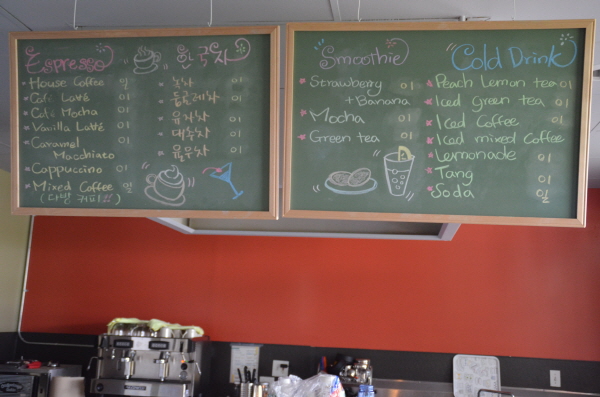 Espresso
House Coffee 일
Café Latté 01
Café Mocha 01
Vanilla Latté 01
Caramel
Macchiato 01
Cappuccino 01
Mixed Coffee 일
(다방 커피)
한국차
녹차 01
둥굴레차 01
유자차 01
대추차 01
율무차 01
Smoothie
Strawberry 01
+ Banana
Mocha 01
Green tea 01
Cold Drink
Peach Lemon tea 01
Iced green tea 01
Iced Coffee 01
Iced mixed Coffee
Lemonade 01
Tang 01
Soda 일